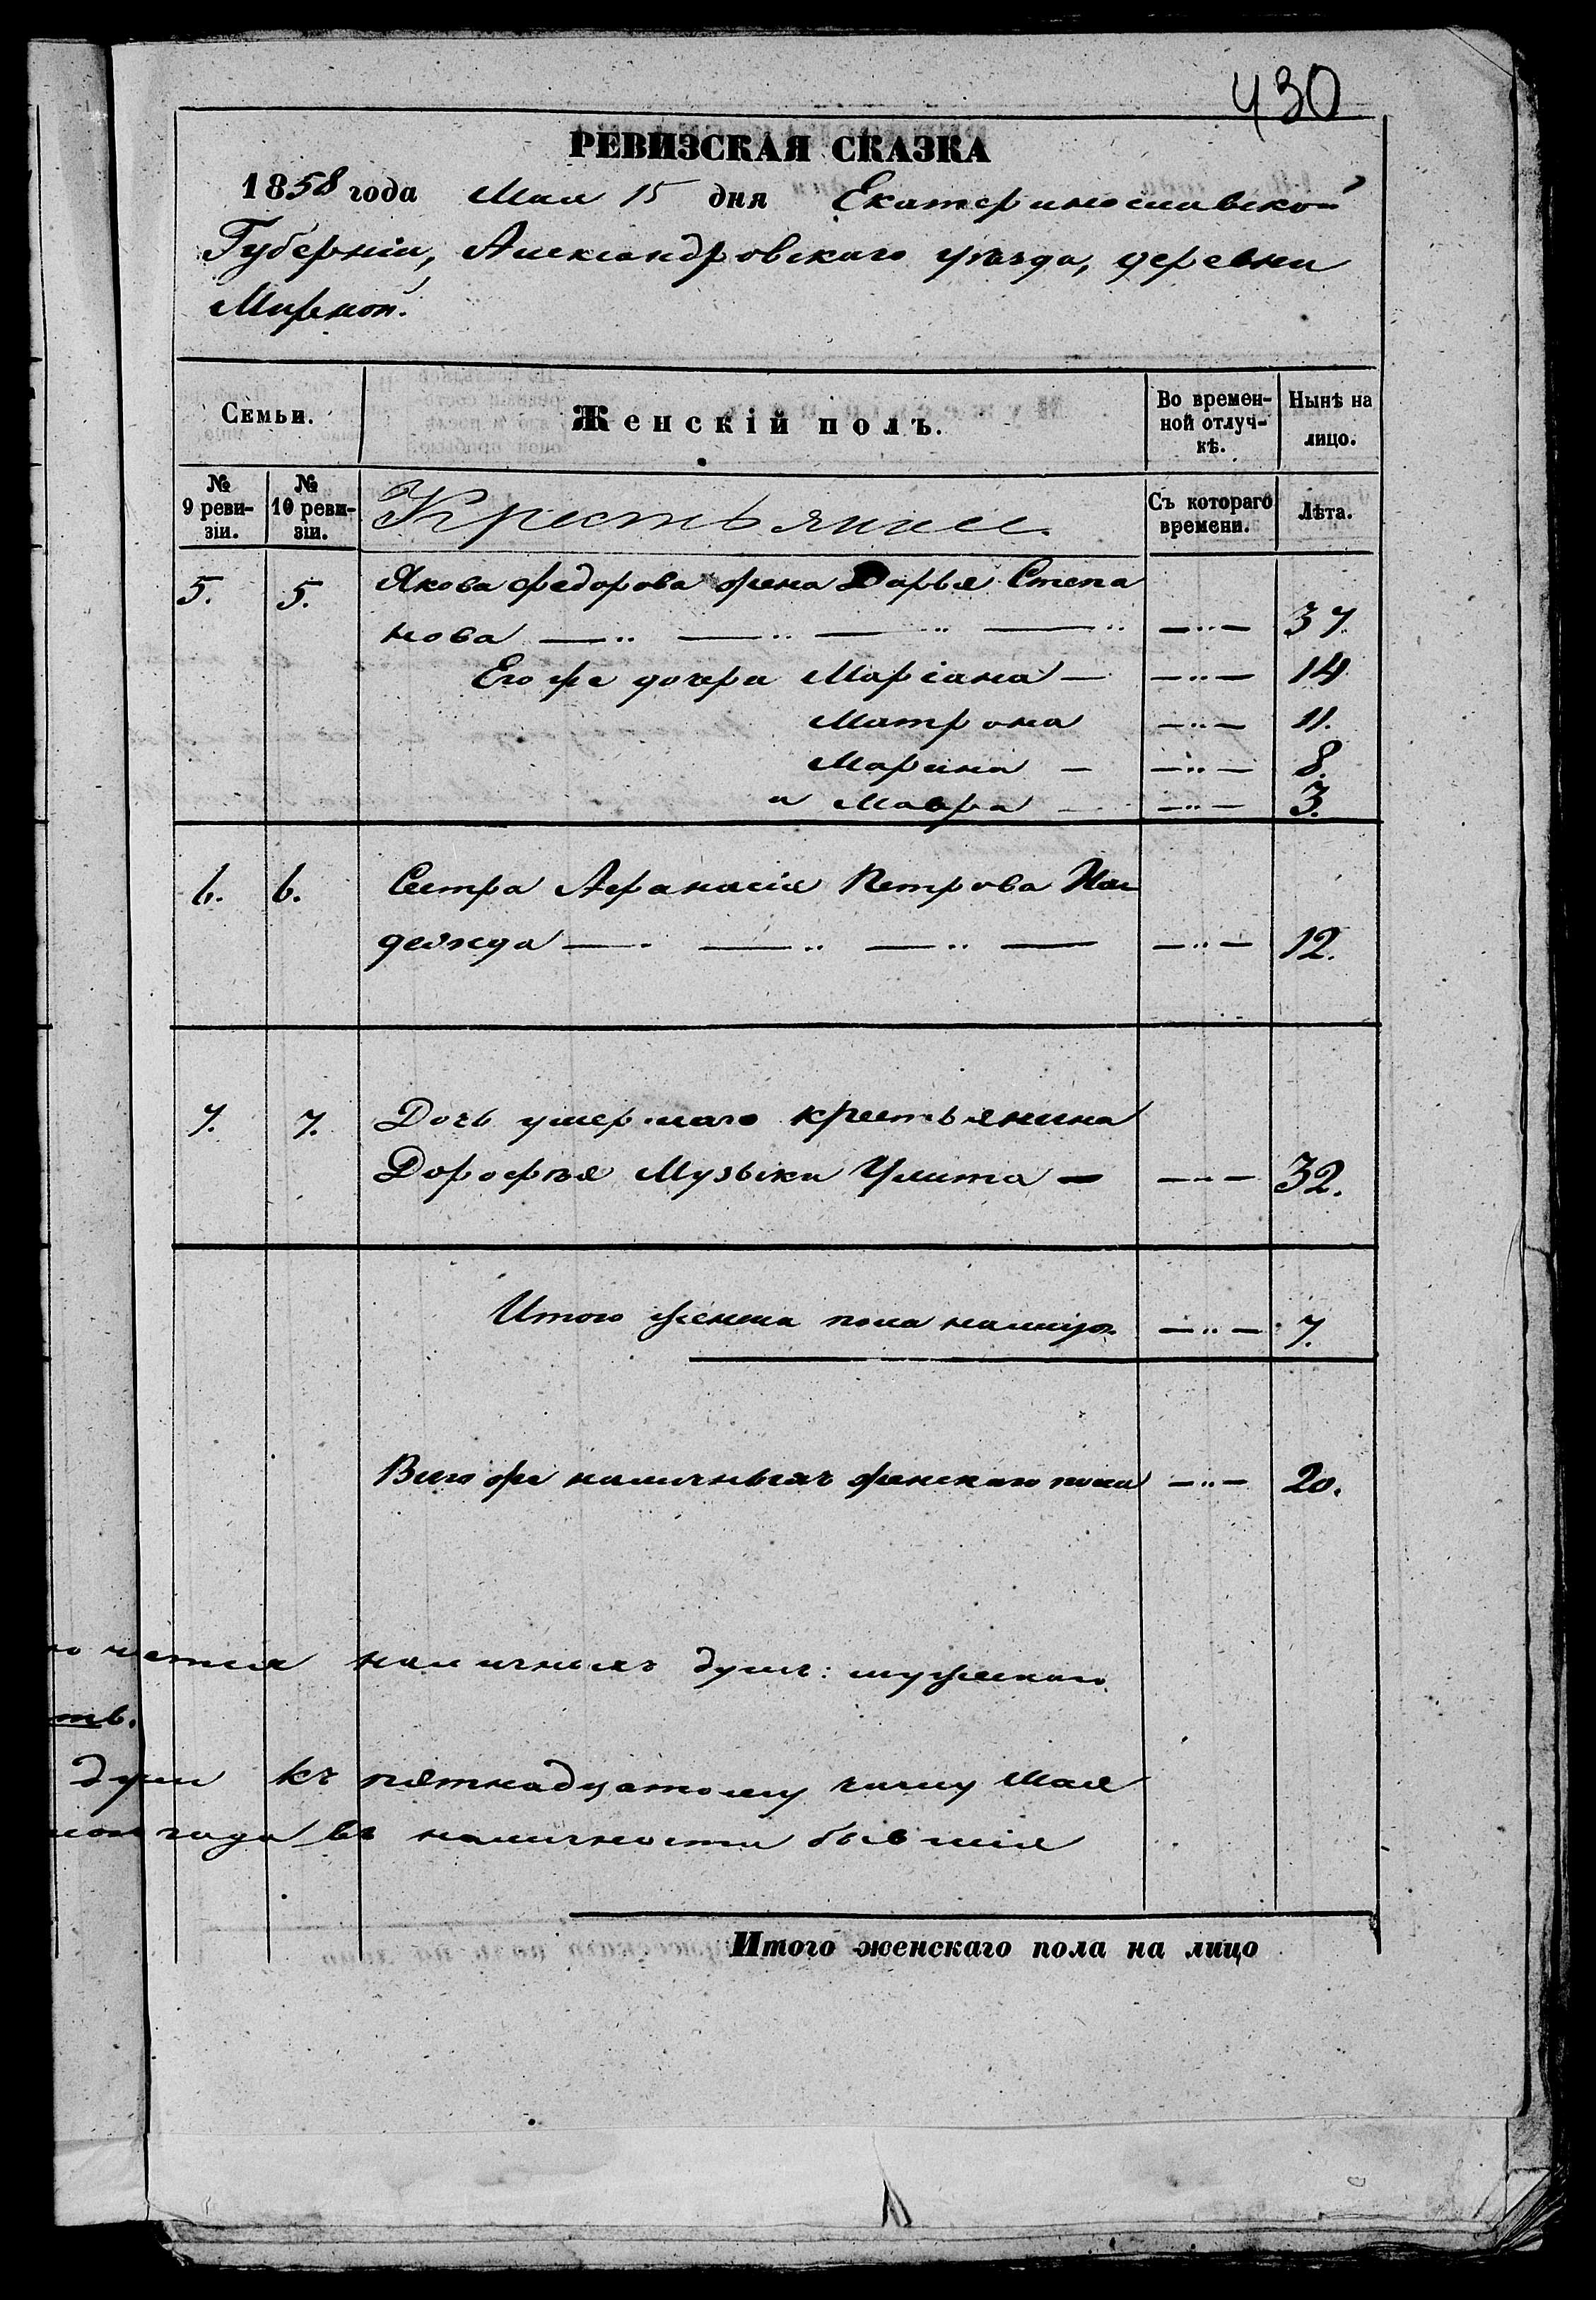 430
РЕВИЗСКАЯ СКАЗКА
1858 года Мая 15 дня Екатеринославской
Губерніи, Александровскаго уѣзда, деревни
Мирной.
Семьи.
Женскій полъ.
Во времен-
ной отлуч-
кѣ.
Нынѣ на
лицо.
№
9 реви-
зіи.
№
10 реви-
зіи.
Крестьяние.
Съ котораго
времени.
Лѣта.
5. 5. Якова Федорова жена Дарья Степа
нова — „ — „ — „ — „ — „ — 37.
Его же дочери Маріана — — „ — 14.
Матрона — „ — 11.
Марина — — „ — 8.
и Мавра — — „ — 3.
6. 6. Сестра Афанасія Петрова На
дежда — „ — „ — „ — — „ — 12.
7. 7. Дочь умершаго крестьянина
Дорофѣя Музыки Улита — — „ — 32.
Итого женска пола налицо. — „ — 7.
Всего же наличныхъ женскаго пола — „ — 20.
наличныхъ душъ: мужскаго
ть.
души къ пятнадцатому числу Мая
года въ наличности бывшія
Итого женскаго пола на лицо